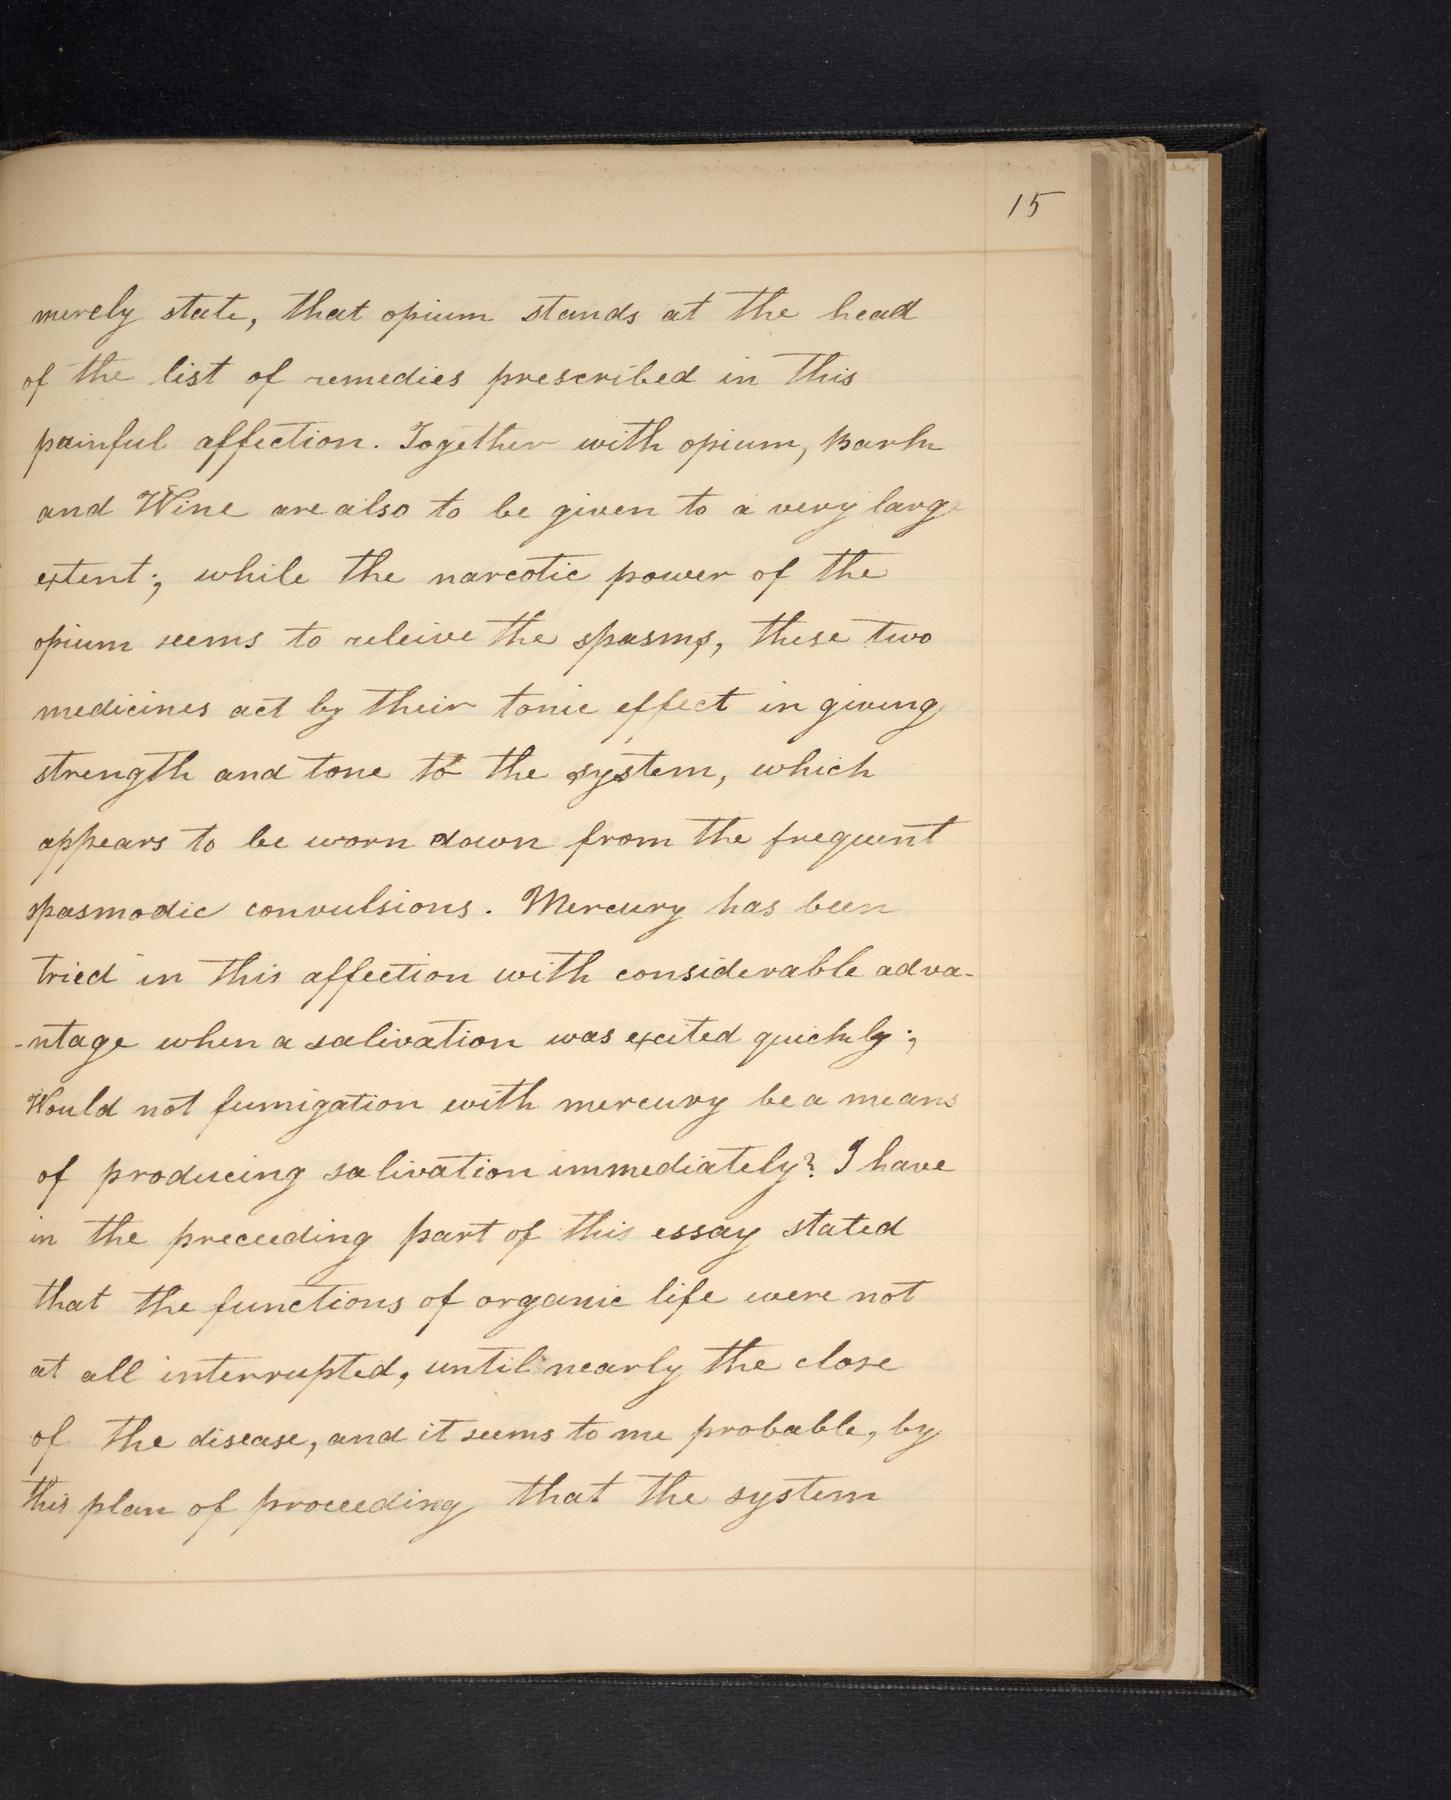 15
merely state, that opium stands at the head
of the list of remedies prescribed in this
painful affection. Together with opium, Bark
and Wine are also to be given to a very large
extent; while the narcotic power of the
opium seems to releive the spasms, these two
medicines act by their tonic effect in giving
strength and tone to the system, which
appears to be worn down from the frequent
spasmodic convulsions. Mercury has been
tried in this affection with considerable adva-
-ntage when a salivation was excited quickly;
Would not fumigation with mercury be a means
of producing salivation immediately? I have
in the preceeding part of this essay stated
that the functions of organic life were not
at all interrupted, until nearly the close
of the disease, and it seems to me probable, by
this plan of proceeding that the system